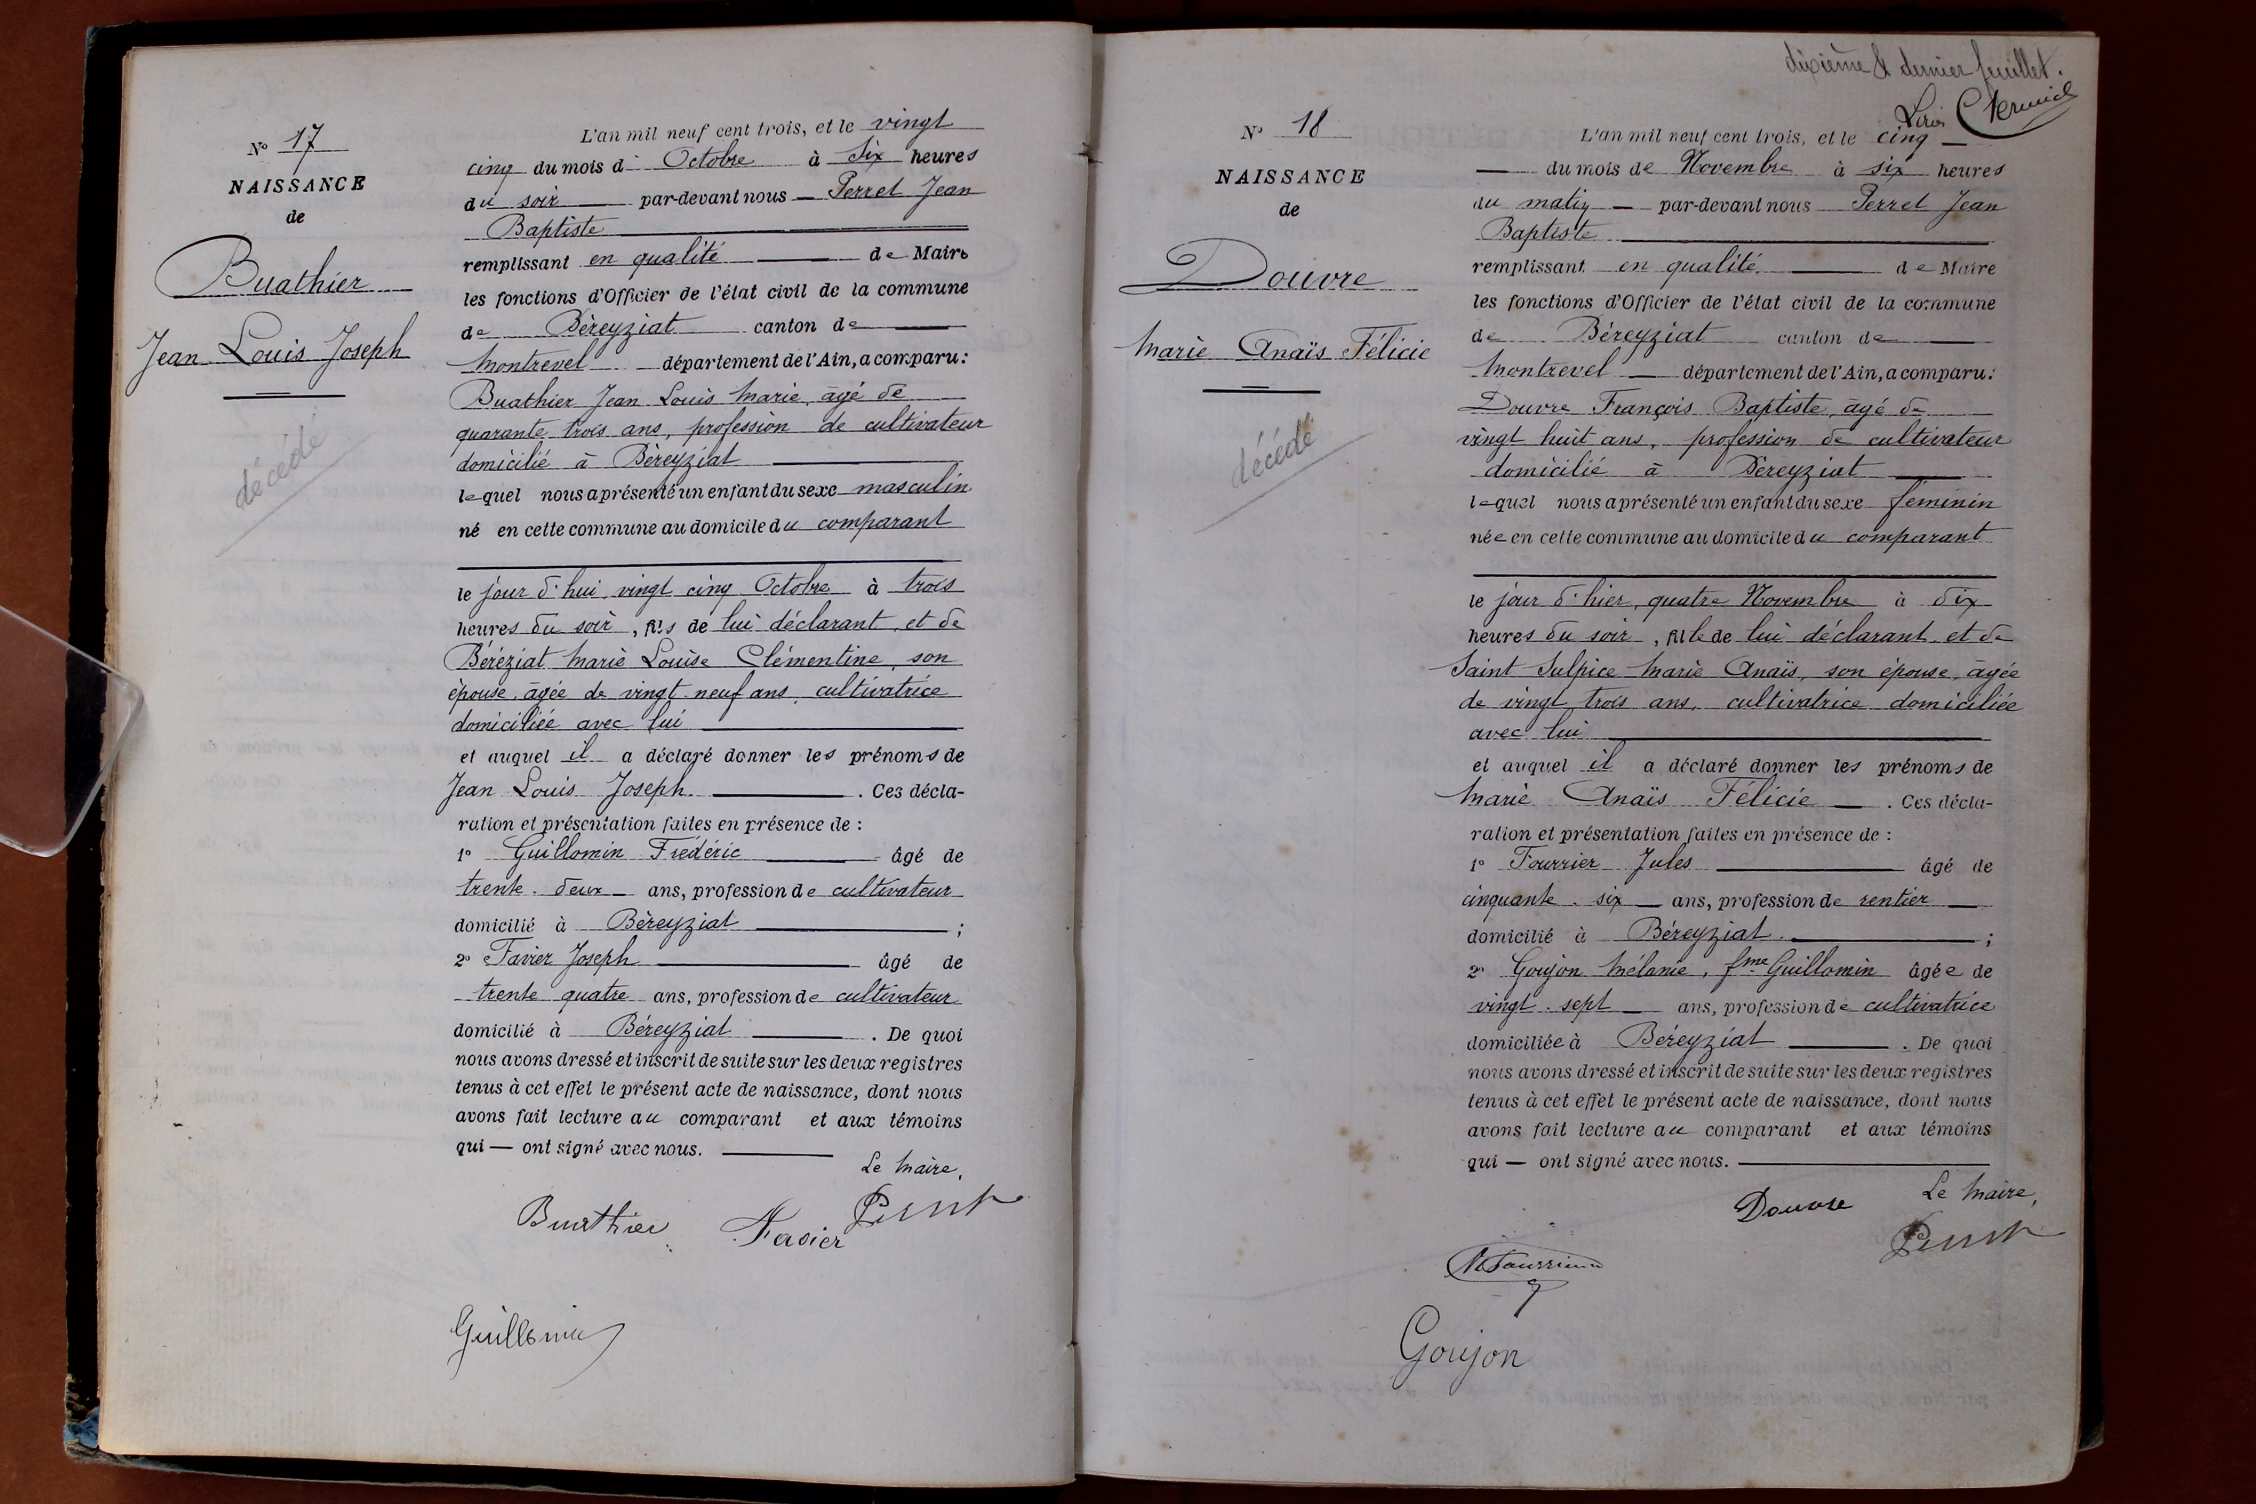 N° 17
NAISSANCE
de
Buathier
Jean Louis Joseph
décédé
L'an mil neuf cent trois, et le vingt
cinq du mois d' Octobre à six heures
du soir par-devant nous Perret Jean
Baptiste
remplissant en qualité de Maire
les fonctions d'Officier de l'état civil de la commune
de Béreyziat canton de
Montrevel département de l'Ain, a comparu:
Buathier Jean Louis Marie, âgé de
quarante trois ans, profession de cultivateur
domicilié à Béreyziat
lequel nous a présenté un enfant du sexe masculin
né en cette commune au domicile du comparant
le jour d'hui, vingt cinq Octobre à trois
heures du soir, fils de lui déclarant, et de
Béréziat Marie Louise Clémentine, son
épouse, âgée de vingt-neuf ans, cultivatrice
domiciliée avec lui
et auquel il a déclaré donner les prénoms de
Jean Louis Joseph. . Ces décla-
ration et présentation faites en présence de :
1° Guillomin Frédéric âgé de
trente-deux ans, profession de cultivateur
domicilié à Béreyziat ;
2° Favier Joseph âgé de
trente quatre ans, profession de cultivateur
domicilié à Béreyziat . De quoi
nous avons dressé et inscrit de suite sur les deux registres
tenus à cet effet le présent acte de naissance, dont nous
avons fait lecture au comparant et aux témoins
qui — ont signé avec nous.
Le Maire,
Buathier Favier Perret
Guillomin
dixième & dernier feuillet.
N° 18
NAISSANCE
de
Douvre
Marie Anaïs Félicie
décédé
L'an mil neuf cent trois, et le cinq
du mois de Novembre à six heures
du matin par-devant nous Perret Jean
Baptiste
remplissant en qualité de Maire
les fonctions d'Officier de l'état civil de la commune
de Béreyziat canton de
Montrevel département de l'Ain, a comparu:
Douvre François Baptiste, âgé de
vingt huit ans, profession de cultivateur
domicilié à Béreyziat
lequel nous a présenté un enfant du sexe féminin
née en cette commune au domicile du comparant
le jour d'hier, quatre Novembre à dix
heures du soir, fille de lui déclarant et de
Saint Sulpice Marie Anaïs, son épouse, âgée
de vingt trois ans, cultivatrice domiciliée
avec lui
et auquel il a déclaré donner les prénoms de
Marie Anaïs Félicie . Ces décla-
ration et présentation faites en présence de :
1° Fourrier Jules âgé de
cinquante-six ans, profession de rentier
domicilié à Béreyziat. ;
2° Goujon Mélanie, fme Guillomin âgée de
vingt-sept ans, profession de cultivatrice
domiciliée à Béreyziat . De quoi
nous avons dressé et inscrit de suite sur les deux registres
tenus à cet effet le présent acte de naissance, dont nous
avons fait lecture au comparant et aux témoins
qui — ont signé avec nous.
Le Maire,
Douvre
Perret
Goujon